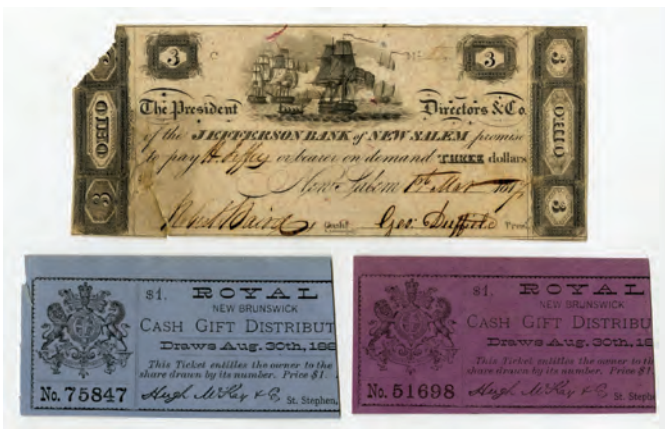 3 3
The President Directors & Co.
of the JEFFERSON BANK of NEW SALEM promise
to pay or bearer on demand THREE dollars
New Salem
Cashr. Geo. Presd.
OHIO
3
3
OHIO
3
$1. ROYAL
NEW BRUNSWICK
CASH GIFT DISTRIBUT
Draws Aug. 30th, 188
This Ticket entitles the owner to the
share drawn by its number. Price $1.
No. 75847 Hugh McKay & Co St. Stephen,
$1. ROYAL
NEW BRUNSWICK
CASH GIFT DISTRIBU
Draws Aug. 30th, 18
This Ticket entitles the owner to th
share drawn by its number. Price $1
No. 51698 Hugh McKay & Co St. Steph